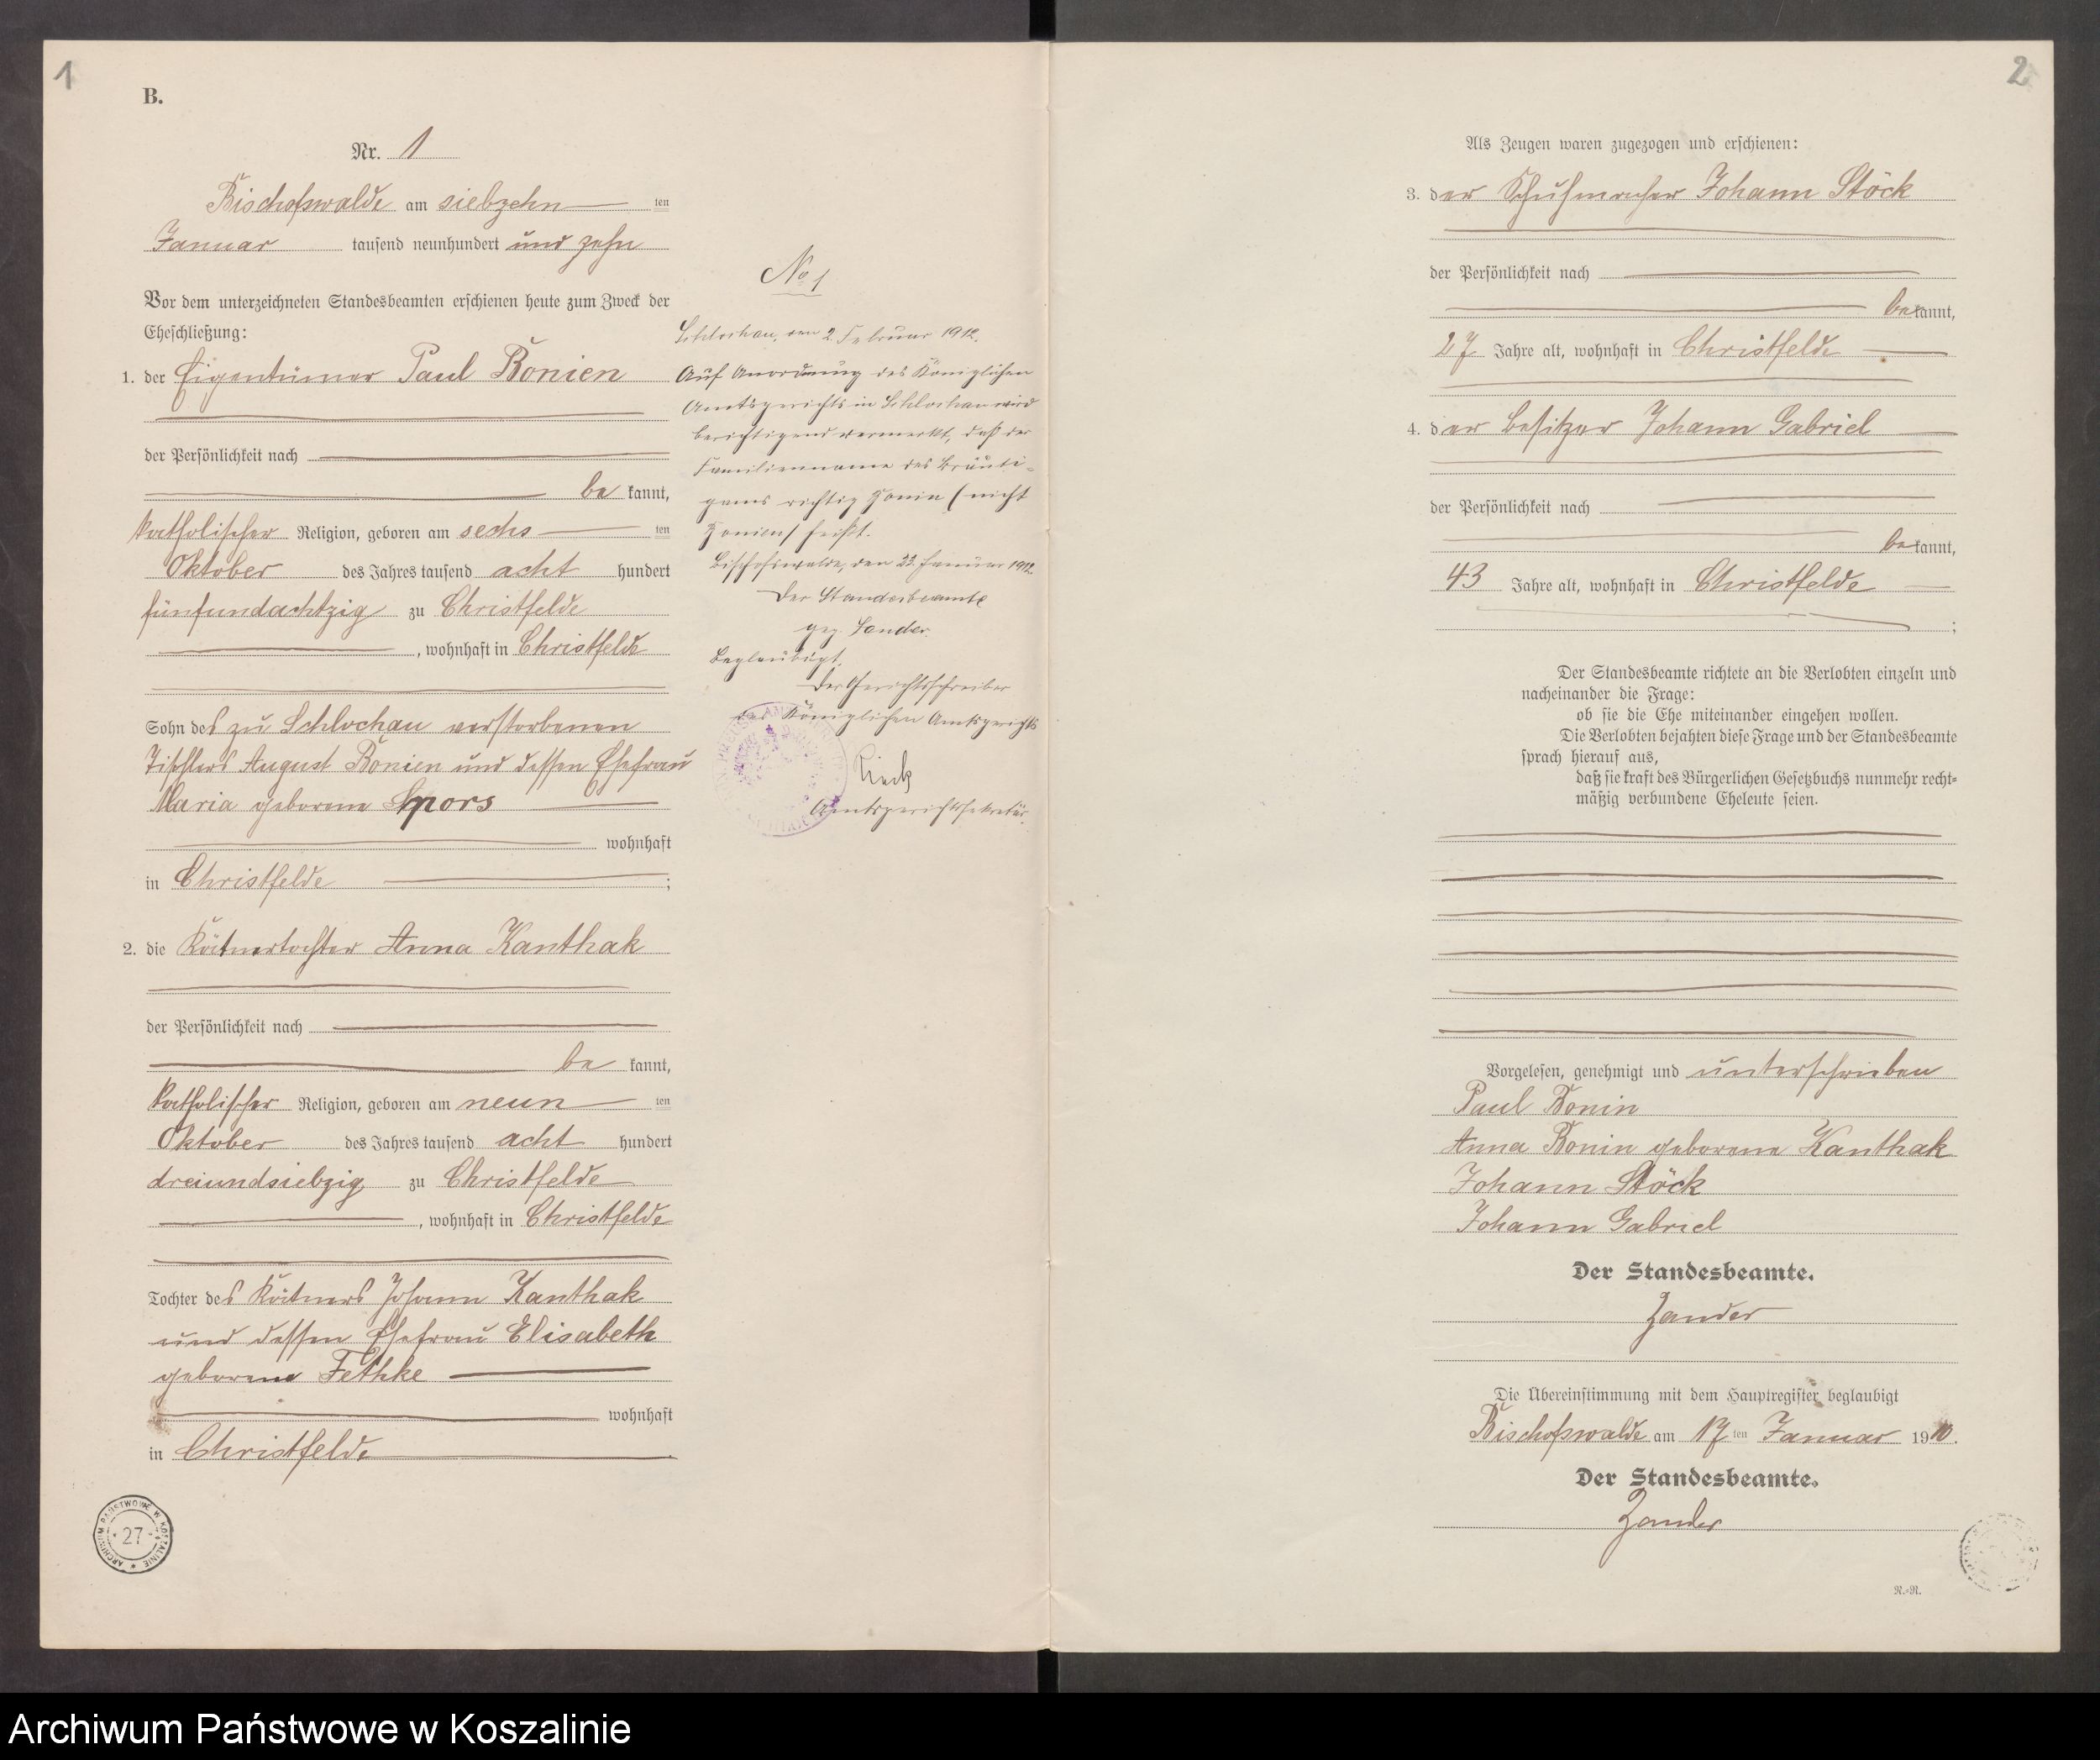 1
B.
Nr. 1
Bischofswalde am siebzehn ten
Januar tausend neunhundert und zehn
Vor dem unterzeichneten Standesbeamten erschienen heute zum Zweck der
Eheschließung:
1. der Eigentümer Paul Bonien
der Persönlichkeit nach
be kannt,
katholischer Religion, geboren am sechs ten
Oktober des Jahres tausend acht hundert
fünfundachtzig zu Christfelde
, wohnhaft in Christfelde
Sohn des zu Schlochau verstorbenen
Tischlers August Bonien und dessen Ehefrau
Maria geborene Spors
wohnhaft
in Christfelde ;
2. die Kätnertochter Anna Kanthak
der Persönlichkeit nach
be kannt,
katholischer Religion, geboren am neun ten
Oktober des Jahres tausend acht hundert
dreiundsiebzig zu Christfelde
, wohnhaft in Christfelde
Tochter des Kätners Johann Kanthak
und dessen Ehefrau Elisabeth
geborene Fethke
wohnhaft
in Christfelde
ARCHIWUM PAŃSTWOWE W KOSZALINIE
27
No 1
Schlochau, den 2. Februar 1912.
Auf Anordnung des Königlichen
Amtsgerichts in Schlochau wird
berichtigend vermerkt, daß der
Familienname des Bräuti-
gams richtig Bonin (nicht
Bonien) heißt.
Bischofswalde, den 23. Januar 1912.
Der Standesbeamte
gez. Zander.
Beglaubigt.
Der Gerichtsschreiber
des Königlichen Amtsgerichts
Amtsgerichtssekretär.
2
Als Zeugen waren zugezogen und erschienen:
3. der Schuhmacher Johann Stöck
der Persönlichkeit nach
bekannt,
27 Jahre alt, wohnhaft in Christfelde
4. der Besitzer Johann Gabriel
der Persönlichkeit nach
bekannt,
43 Jahre alt, wohnhaft in Christfelde
;
Der Standesbeamte richtete an die Verlobten einzeln und
nacheinander die Frage:
ob sie die Ehe miteinander eingehen wollen.
Die Verlobten bejahten diese Frage und der Standesbeamte
sprach hierauf aus,
daß sie kraft des Bürgerlichen Gesetzbuchs nunmehr recht-
mäßig verbundene Eheleute seien.
Vorgelesen, genehmigt und unterschrieben
Paul Bonin
Anna Bonin geborene Kanthak
Johann Stöck
Johann Gabriel
Der Standesbeamte.
Zander
Die Übereinstimmung mit dem Hauptregister beglaubigt
Bischofswalde am 17 ten Januar 1910.
Der Standesbeamte.
Zander
R.-R.
Archiwum Państwowe w Koszalinie